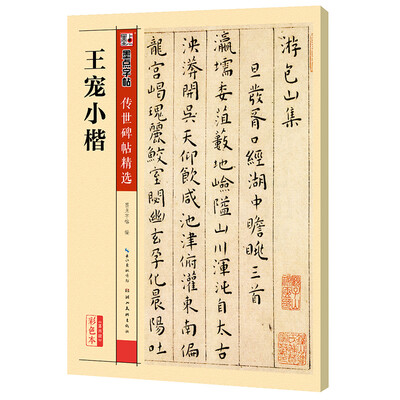 墨点字帖
传世碑帖精选
王宠小楷
墨点字帖 编
长江出版传媒
湖北美术出版社
彩色本
游包山集
旦發胥口經湖中瞻眺三首
瀛壖委菹藪地嶮隘山川渾沌自太古
泱漭開吳天仰飲咸池津俯灌東南偏
龍宮嵑瑰麗鮫室閟幽玄孕化晨陽吐